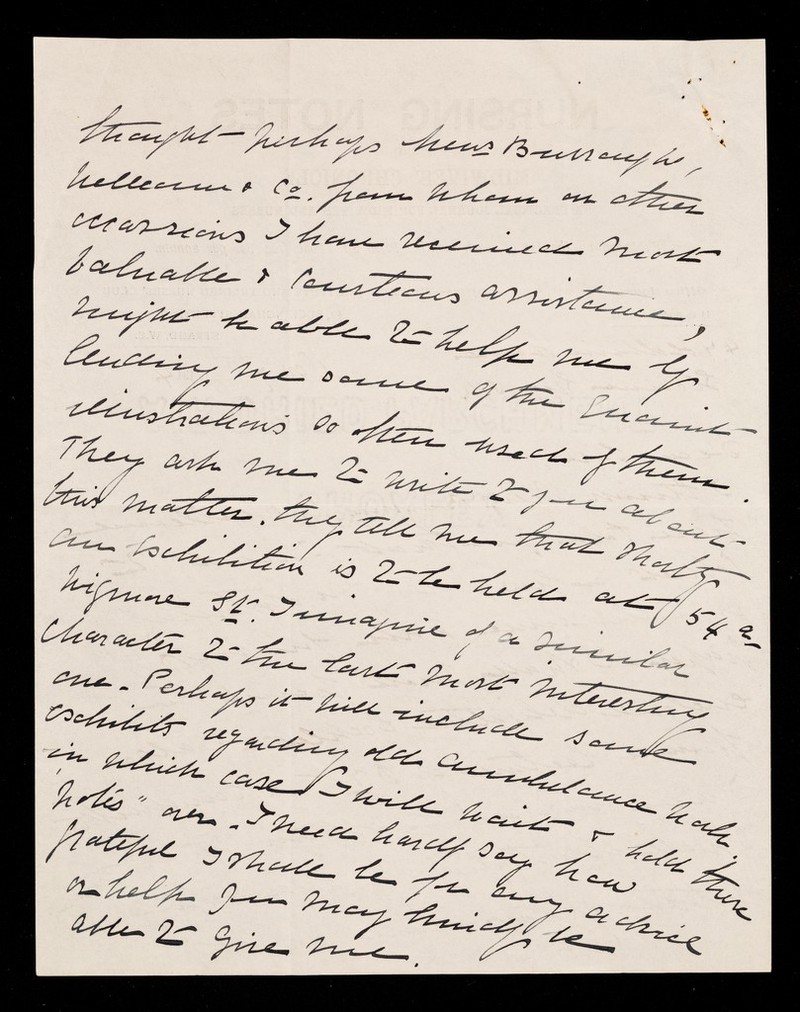 thought perhaps Messrs Burroughs,
Wellcome & Co. from whom on other
occassions I have received most
valuable & courteous assistance,
might be able to help me by
lending me some of the quaint
illustrations so often used of them.
They ask me to write to you about
this matter. They tell me that shortly
an Exhibition is to be held at 54a
Wigmore St. I imagine of a similar
character to the last most interesting
one. Perhaps it will include some
exhibits regarding old ambulance work
in which case I will wait & hold these
"notes" over. I need hardly say how
grateful I shall be for any advice
or help you may kindly be
able to give me.